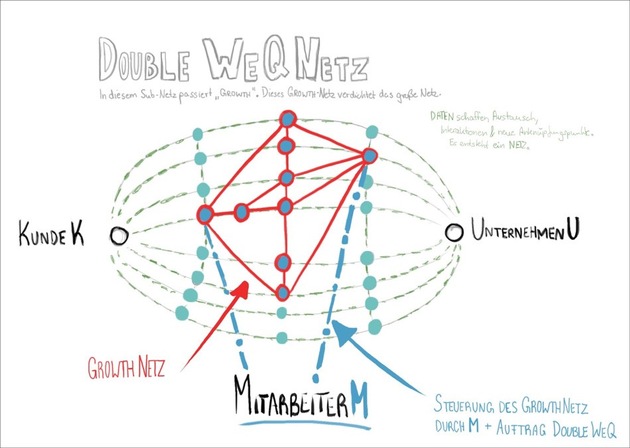 DOUBLE WEQ NETZ
In diesem Sub-Netz passiert „GROWTH“. Dieses GROWTH-Netz verdichtet das große Netz.
DATEN schaffen Austausch,
Interaktionen & neue Anknüpfungspunkte.
Es entsteht ein NETZ.
KUNDE K
UNTERNEHMEN U
GROWTH NETZ
MITARBEITER M
STEUERUNG DES GROWTH NETZ
DURCH M + AUFTRAG DOUBLE WEQ